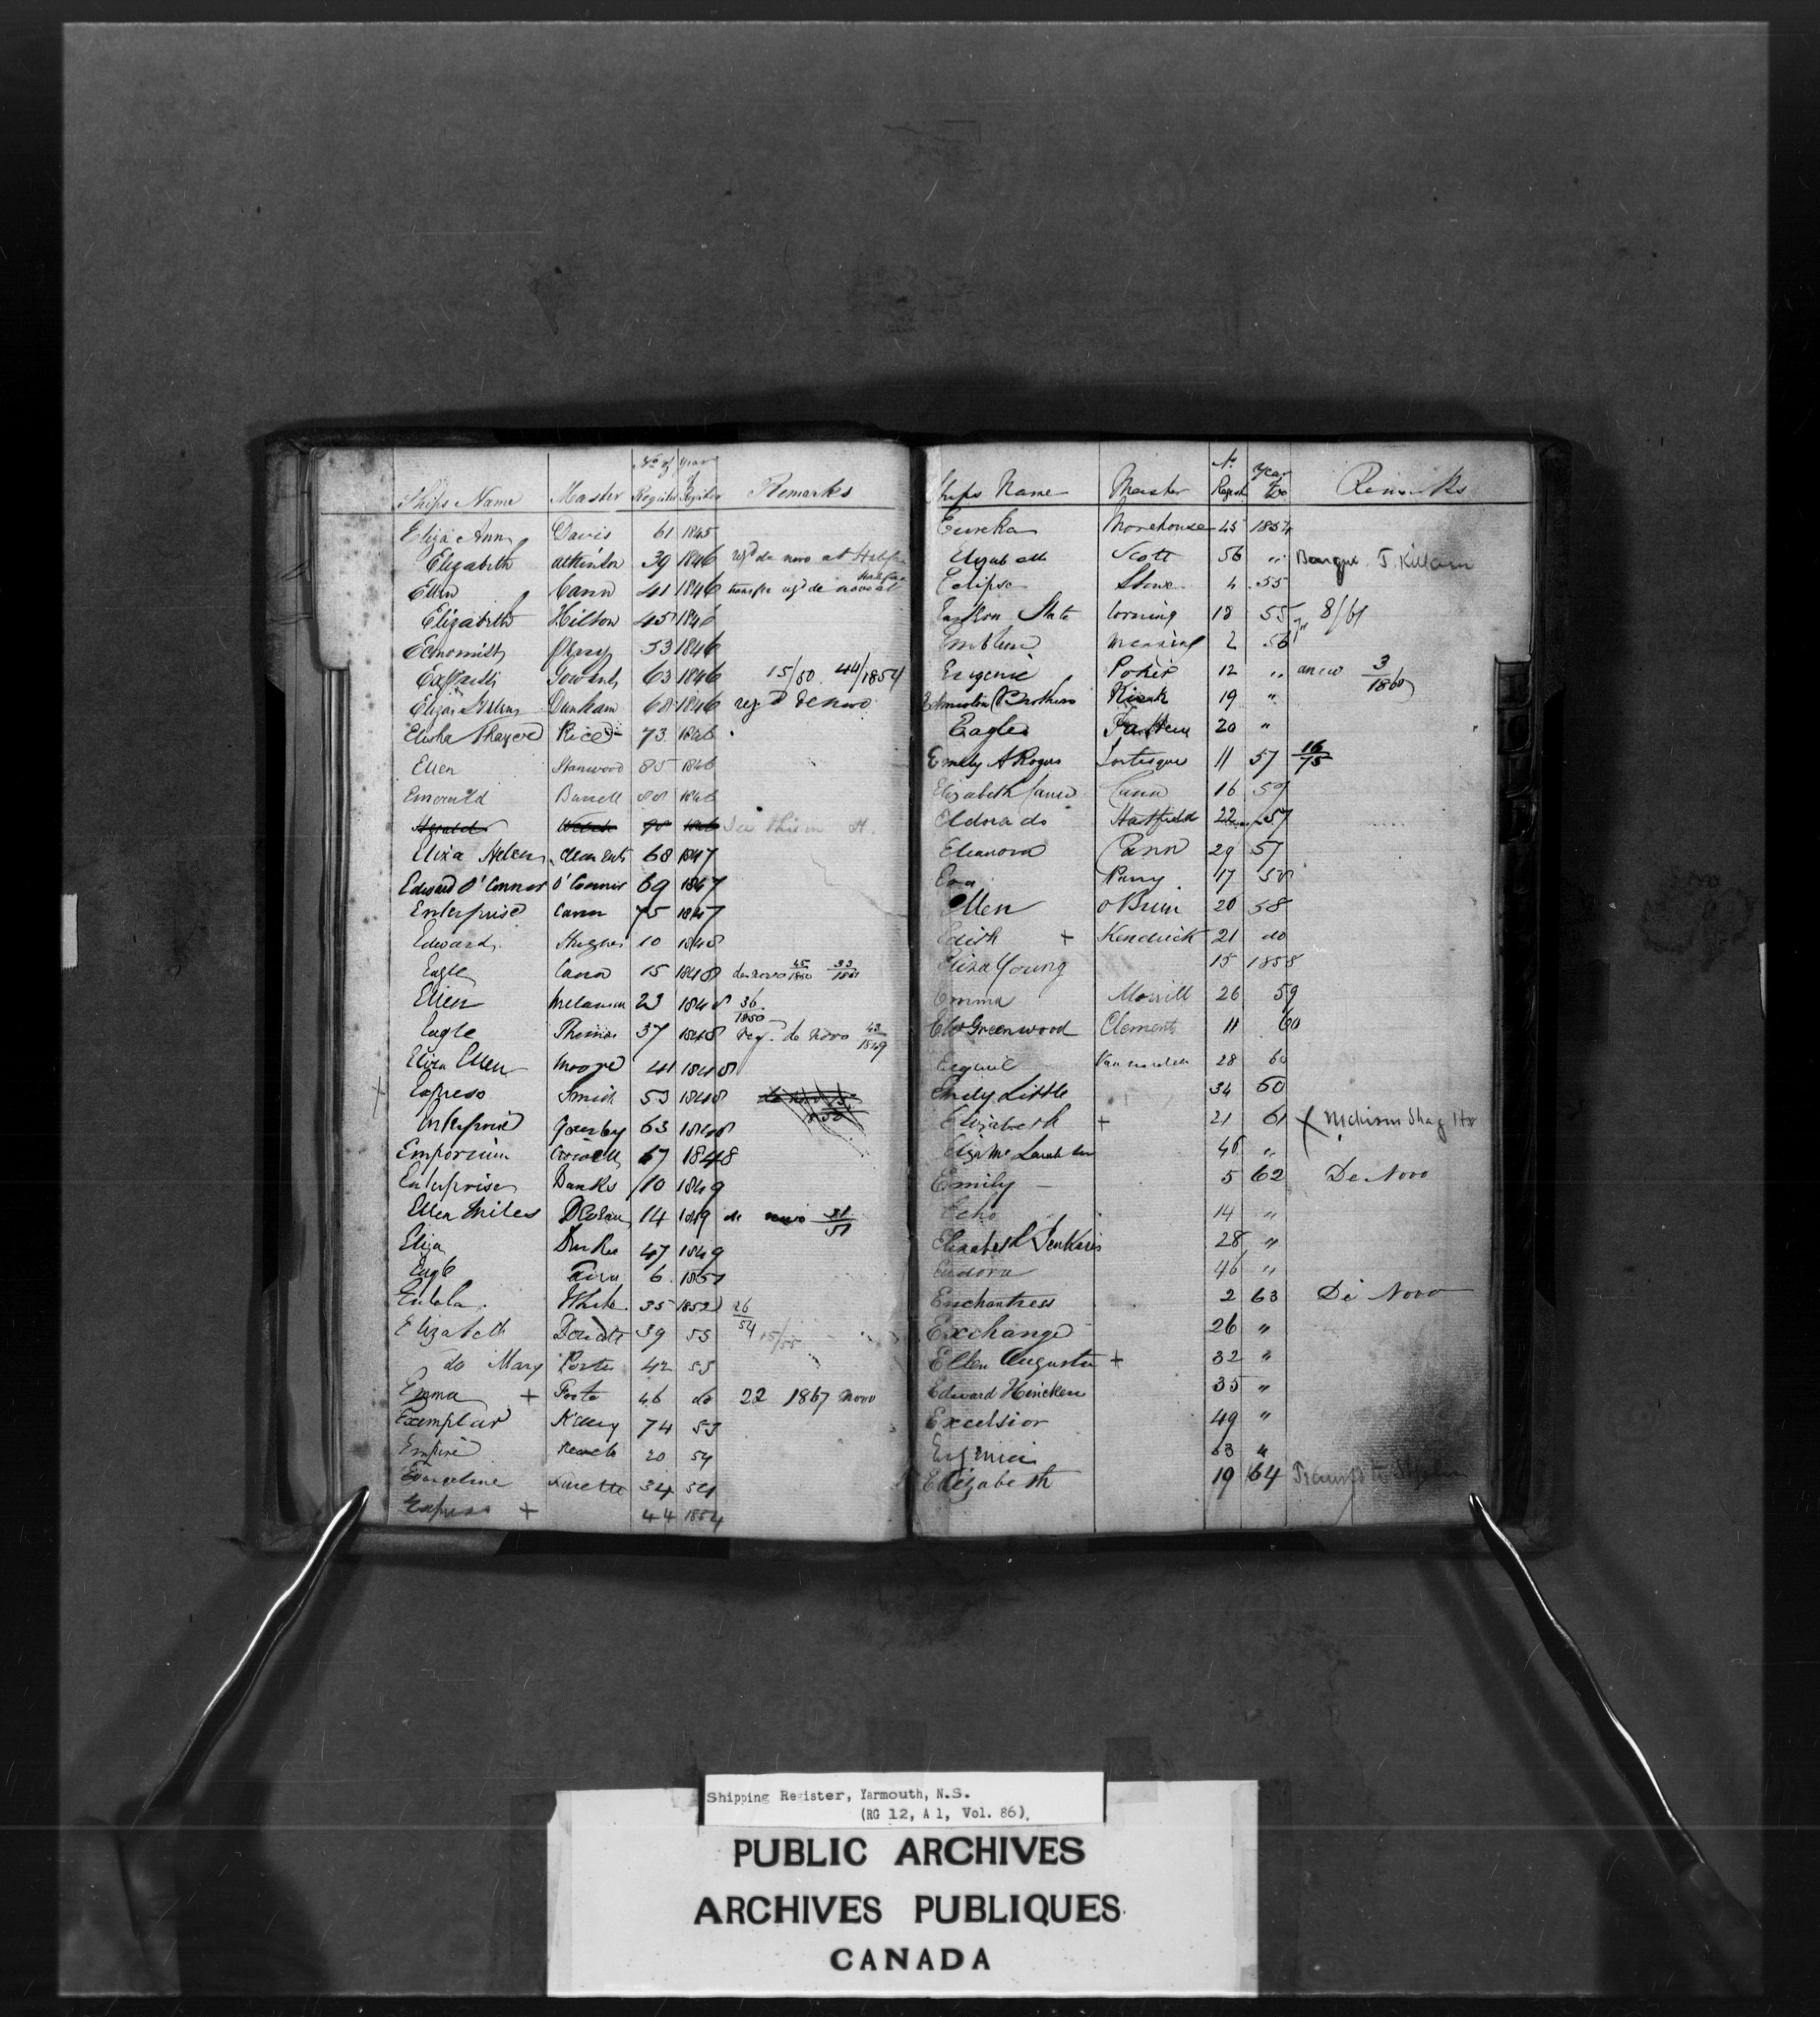 No. of Year of
Ships Name Master Register Register Remarks
Eliza Ann Davis 61 1845
Elizabeth Atkinson 39 1846 regd de novo at Halifax
Ellen Cann 41 1846 transfer regd de novo at Halifax
Elizabeth Hilton 45 1846
Economist 53 1846
63 1846 15/50 44/1854
Eliza Dunham 68 1846 reg'd de novo
Elisha Thayer Rice 73 1846
Ellen Stanwood 85 1846
Emerald Burrell 88 1846
Herald Welch 90 1846 See this in H.
Eliza Helen Clements 68 1847
Edward O'Connor O'Connor 69 1847
Enterprise Cann 75 1847
Edward Hughes 10 1848
Eagle Cann 15 1848 de novo 45/1850 33/1851
Ellen Melanson 23 1848 36/1850
Eagle Thomas 37 1848 reg. de novo 43/1849
Eliza Ellen Moore 41 1848
+ Express Smith 53 1848
Enterprise 63 1848
Emporium Crowell 67 1848
Enterprise Banks 10 1849
Ellen Miles 14 1849 de novo 31/51
Eliza Durkee 47 1849
Eagle 6 1851
Eulala White 35 1852 26/54
Elizabeth Doucette 39 53 15/55
do Mary Porter 42 53
Emma + Foote 46 do 22 1867 Novo
Exemplar Killey 74 53
Empire 20 54
Evangeline 34 54
Express + 44 1854
Ships Name Master No. Regist Year Do Remarks
Eureka Morehouse 45 1854
Elizabeth Scott 56 " Barque J. Killam
Eclipse Stone 4 55
Eastern State Corning 18 55 8/61
Emblem 2 56
Eugenie Porter 12 " anew 3/1860
Brothers 19 "
Eagle 20 "
Emily A Rogers 11 57 16/75
Elizabeth Cann 16 57
Eldorado Hatfield 22 57
Eleanora Cann 29 57
Eva Parry 17 58
Ellen O Brien 20 58
Edith + Kendrick 21 do
Eliza Young 15 1858
Emma Morrill 26 59
Greenwood Clements 11 60
28 60
Emily Little 34 60
Elizabeth + 21 61
46 "
Emily 5 62 De Novo
Echo 14 "
Elizabeth Jenkins 28 "
Eudora 46 "
Enchantress 2 63 De Novo
Exchange 26 "
Ellen Augusta + 32 "
Edward Hincken 35 "
Excelsior 49 "
63 "
Elizabeth 19 64
Shipping Register, Yarmouth, N.S.
(RG 12, A 1, Vol. 86).
PUBLIC ARCHIVES
ARCHIVES PUBLIQUES
CANADA